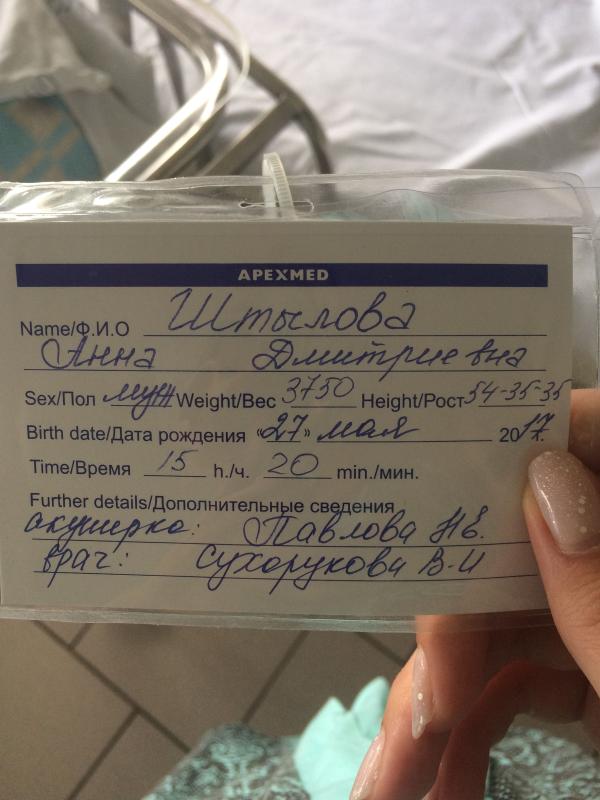 APEXMED
Name/Ф.И.О Штылова
Анна Дмитриевна
Sex/Пол муж Weight/Вес 3750 Height/Рост 54-35-35
Birth date/Дата рождения «27» мая 2017г.
Time/Время 15 h./ч. 20 min./мин.
Further details/Дополнительные сведения
акушерка: Павлова Н.Е.
врач: Сухорукова В-И